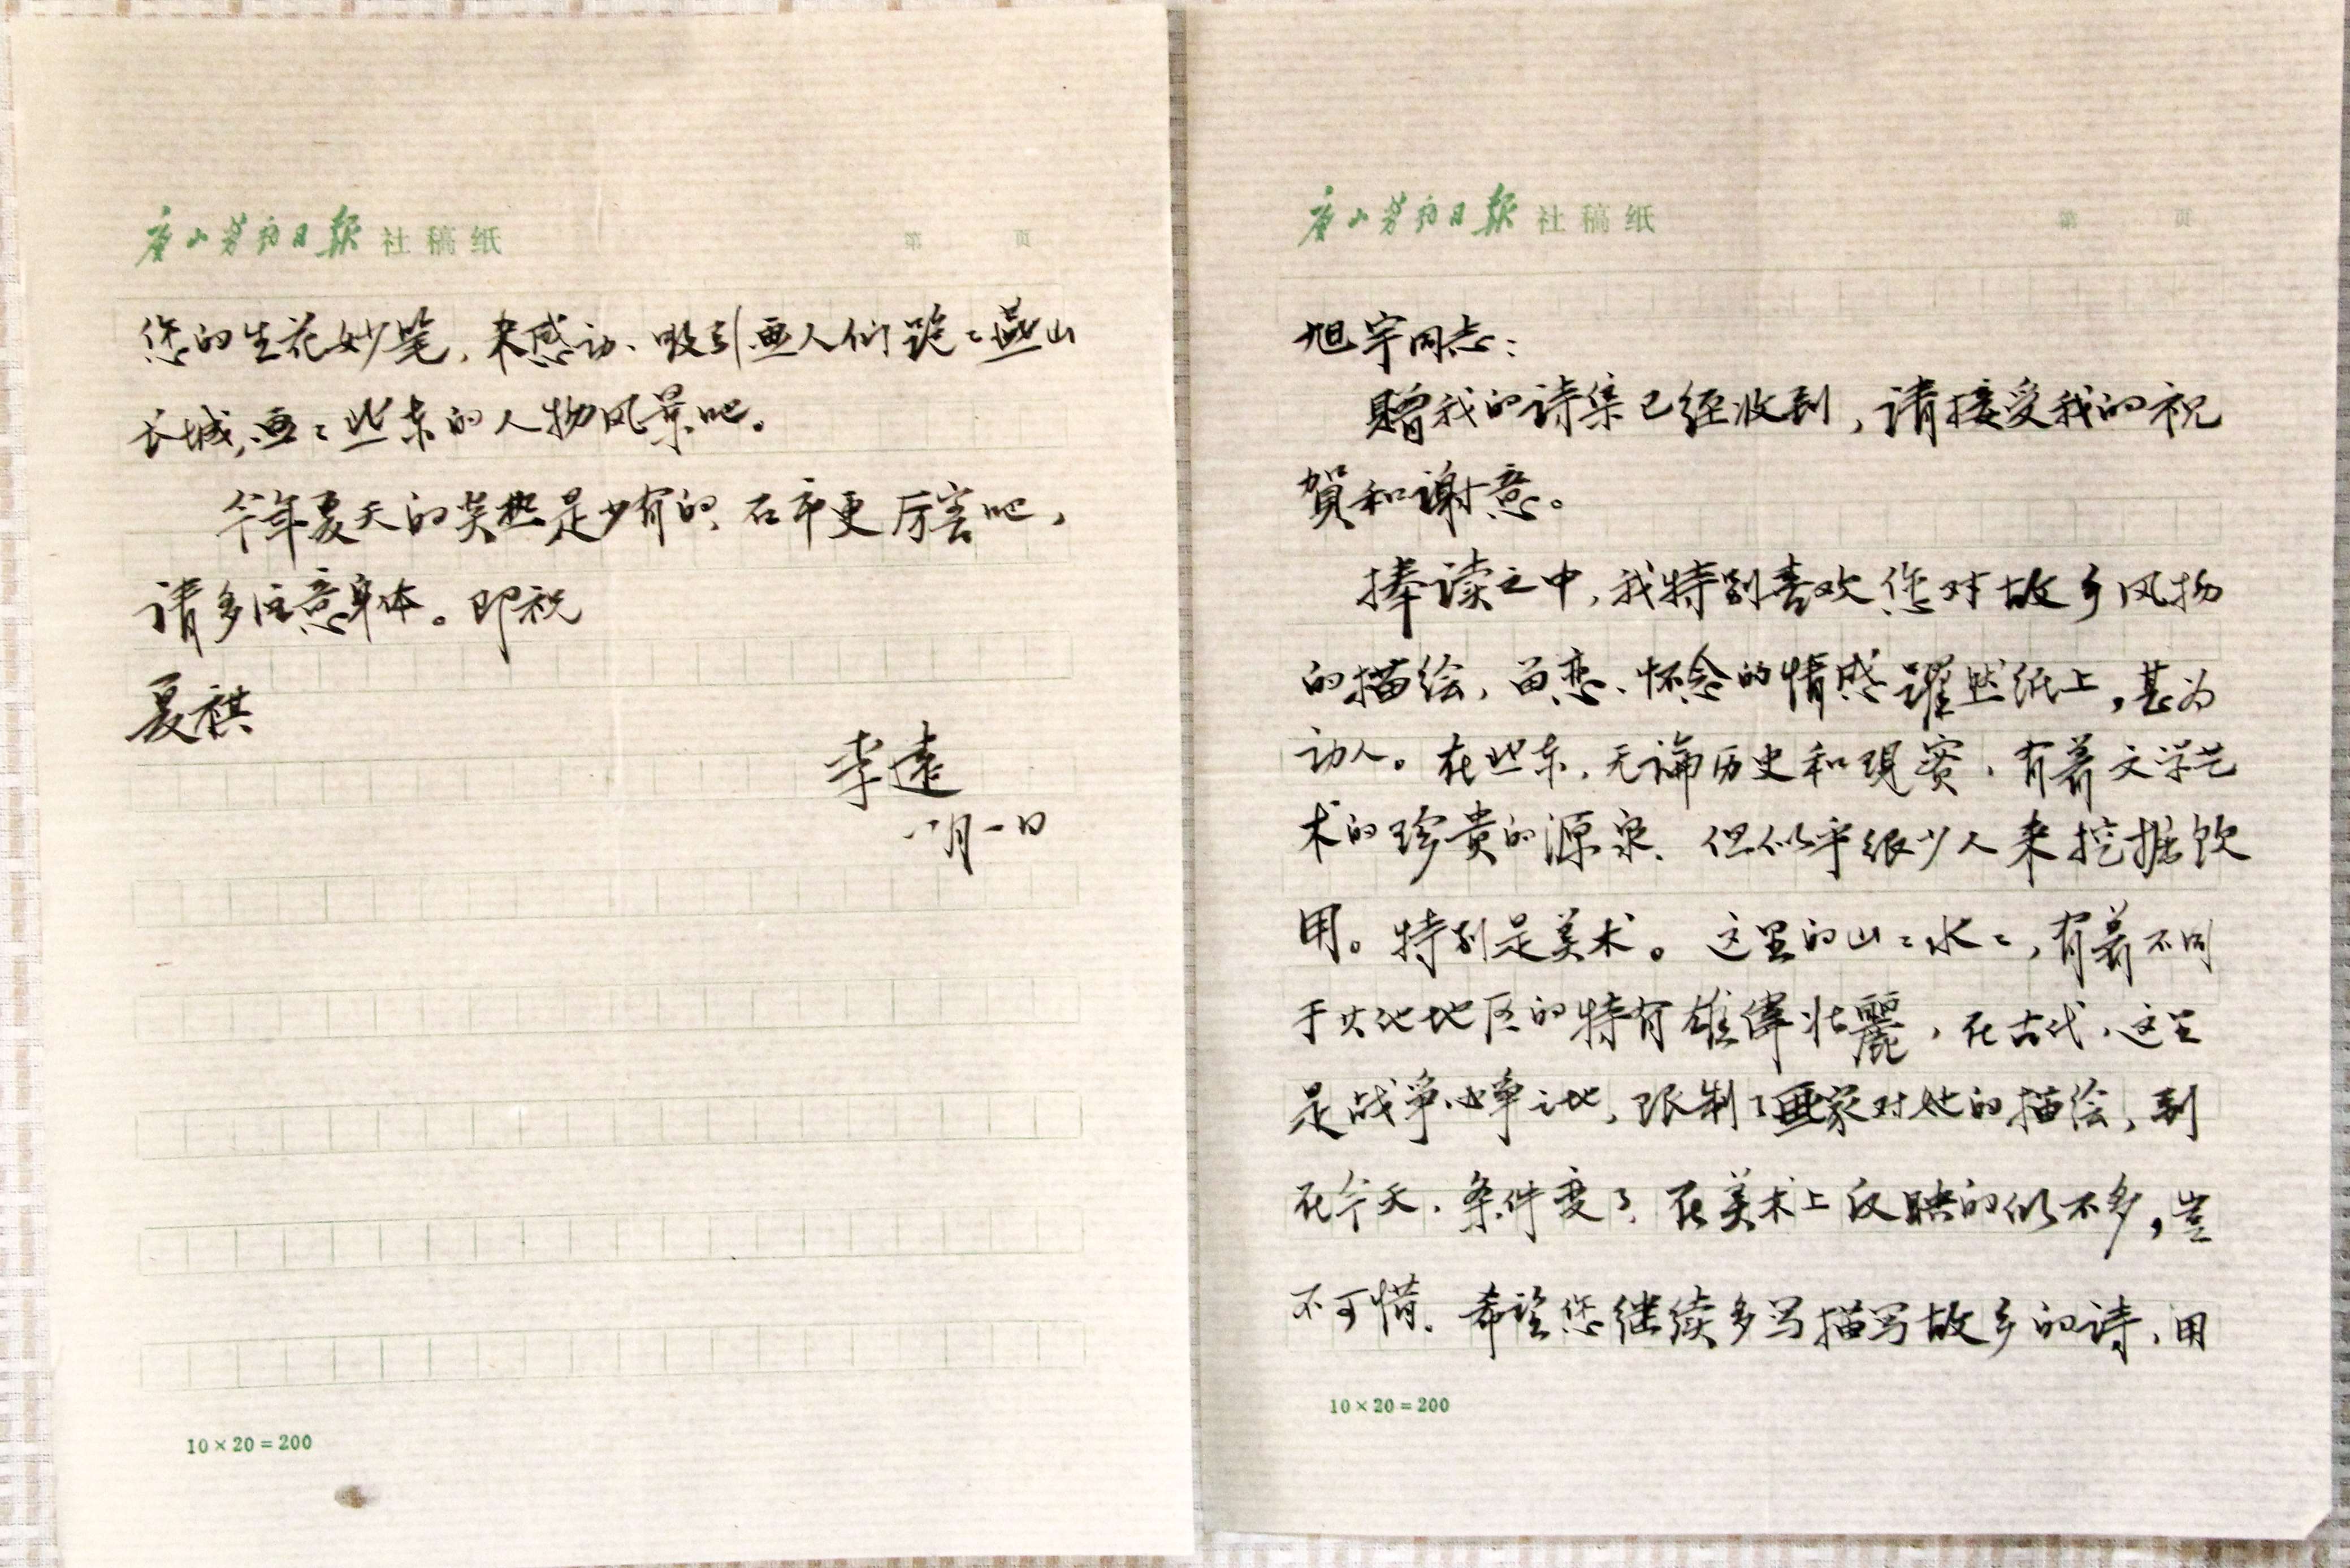 唐山劳动日报社稿纸 第 页
旭宇同志：
贈我的诗集已经收到，请接受我的祝
賀和谢意。
捧读之中，我特别喜欢您对故乡风物
的描绘，留恋、怀念的情感躍然纸上，甚为
动人。在冀东，无論历史和現实，有着文学艺
术的珍贵的源泉，但似乎很少人来挖掘饮
用。特别是美术。这里的山〻水〻，有着不同
于其他地区的特有雄偉壮麗，在古代，这里
是战争必争之地，限制了画家对她的描绘，到
在今天，条件变了，在美术上反映的似不多，岂
不可惜。希望您继续多写描写故乡的诗，用
10×20=200
唐山劳动日报社稿纸 第 页
您的生花妙笔，来感动、吸引画人们跑〻燕山
长城，画〻冀东的人物风景吧。
今年夏天的炎热是少有的，石市更厉害吧，
请多注意身体。即祝
夏祺
李遠
八月一日
10×20=200